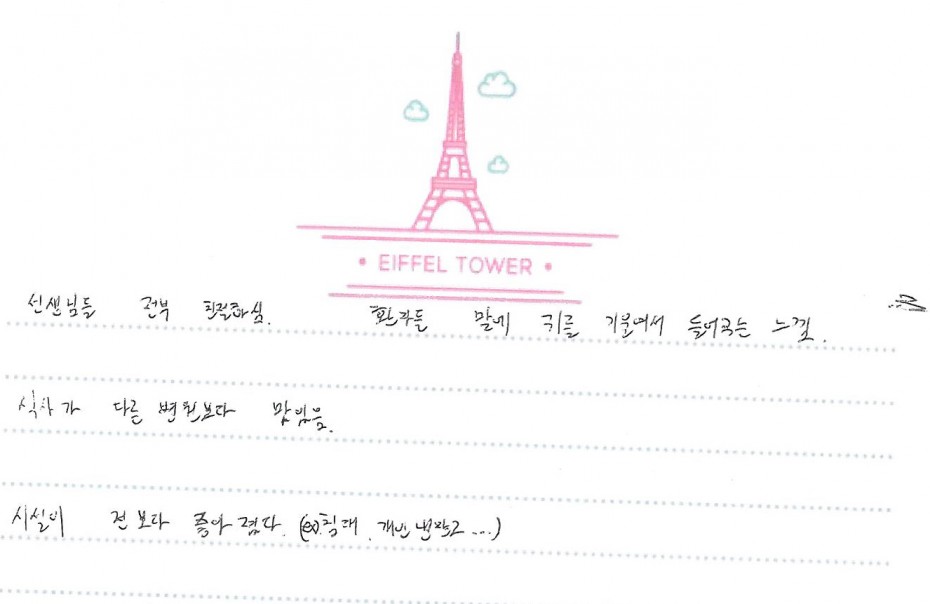 EIFFEL TOWER
선생님들 전부 친절하심. 환자들 말에 귀를 기울여서 들어주는 느낌.
식사가 다른 병원보다 맛있음.
시설이 전보다 좋아졌다. (ex.침대, 개인냉장고...)